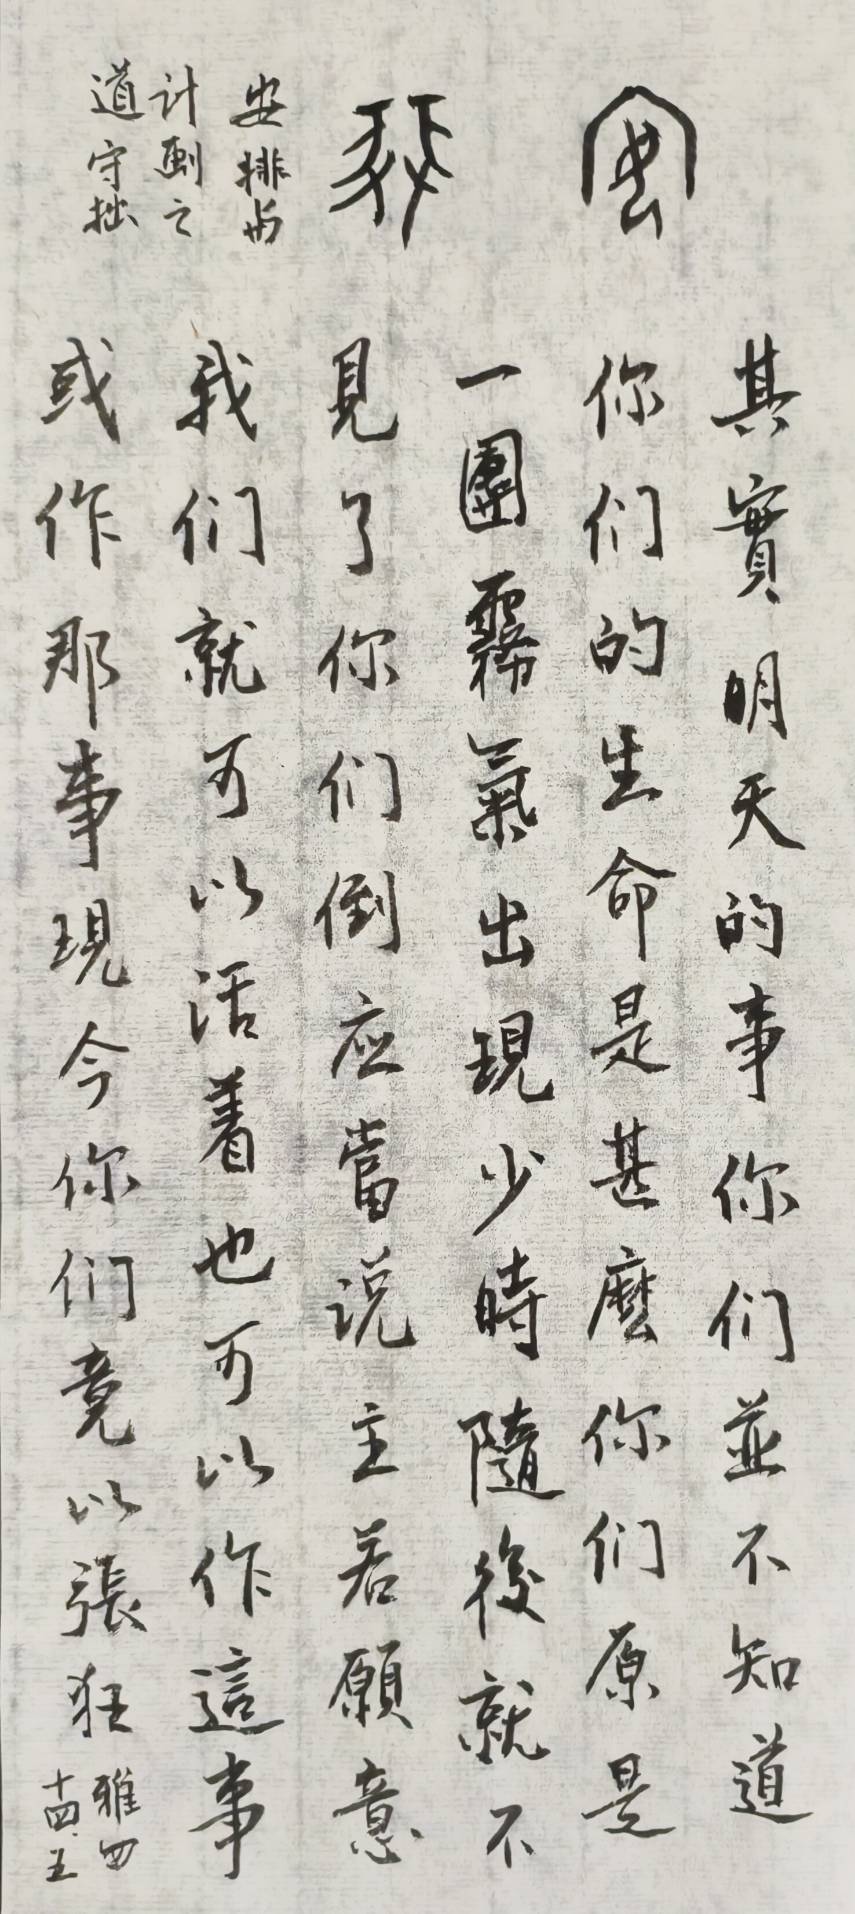 安排与
计劃之
道 守拙
其實明天的事你们並不知道
你们的生命是甚麽你们原是
一團霧氣出現少時隨後就不
見了你们倒应當说主若願意
我们就可以活着也可以作這事
或作那事現今你们竟以張狂
雅四
十四.五